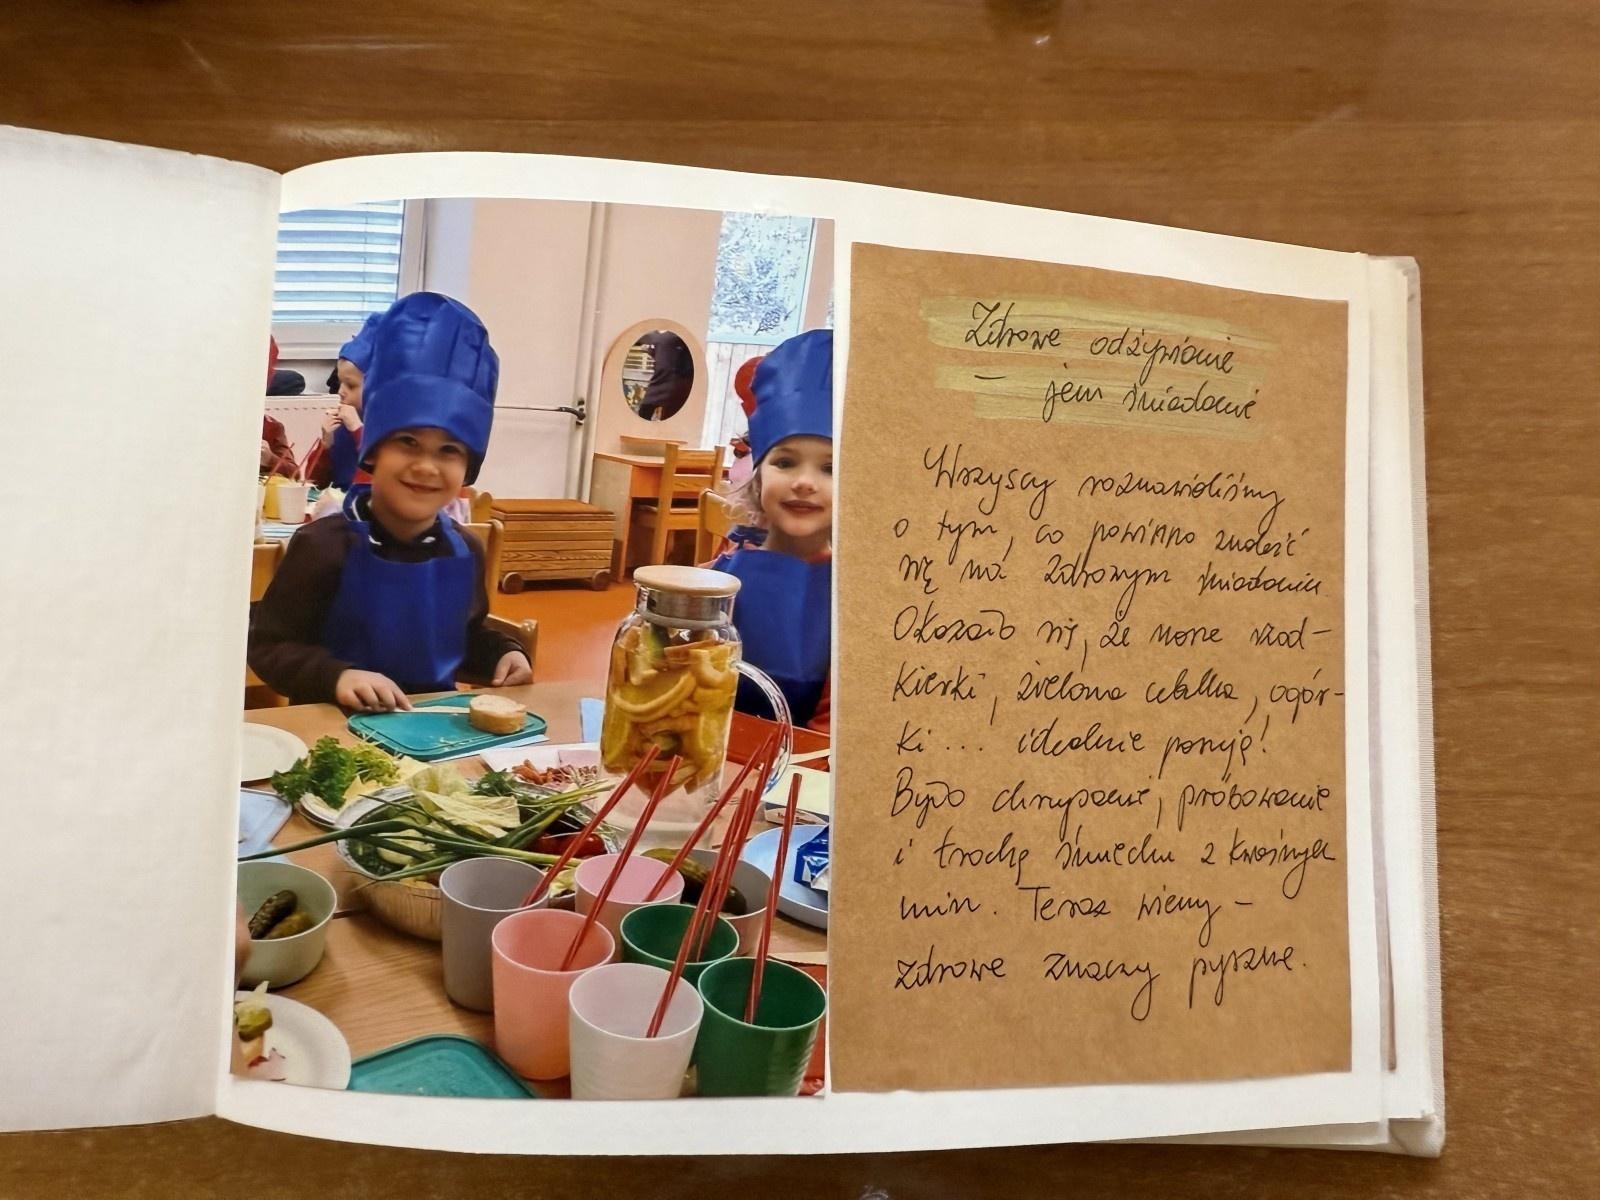 Zdrowe odżywianie
– jem śniadanie
Wszyscy rozmawialiśmy
o tym, co powinno znaleźć
się na zdrowym śniadaniu.
Okazało się, że nowe rzod-
kierki, zielona cebulka, ogór-
ki ... idealnie pasują!
Było chrupanie, próbowanie
i trochę śmiechu z kwaśnych
min. Teraz wiemy –
zdrowe znaczy pyszne.